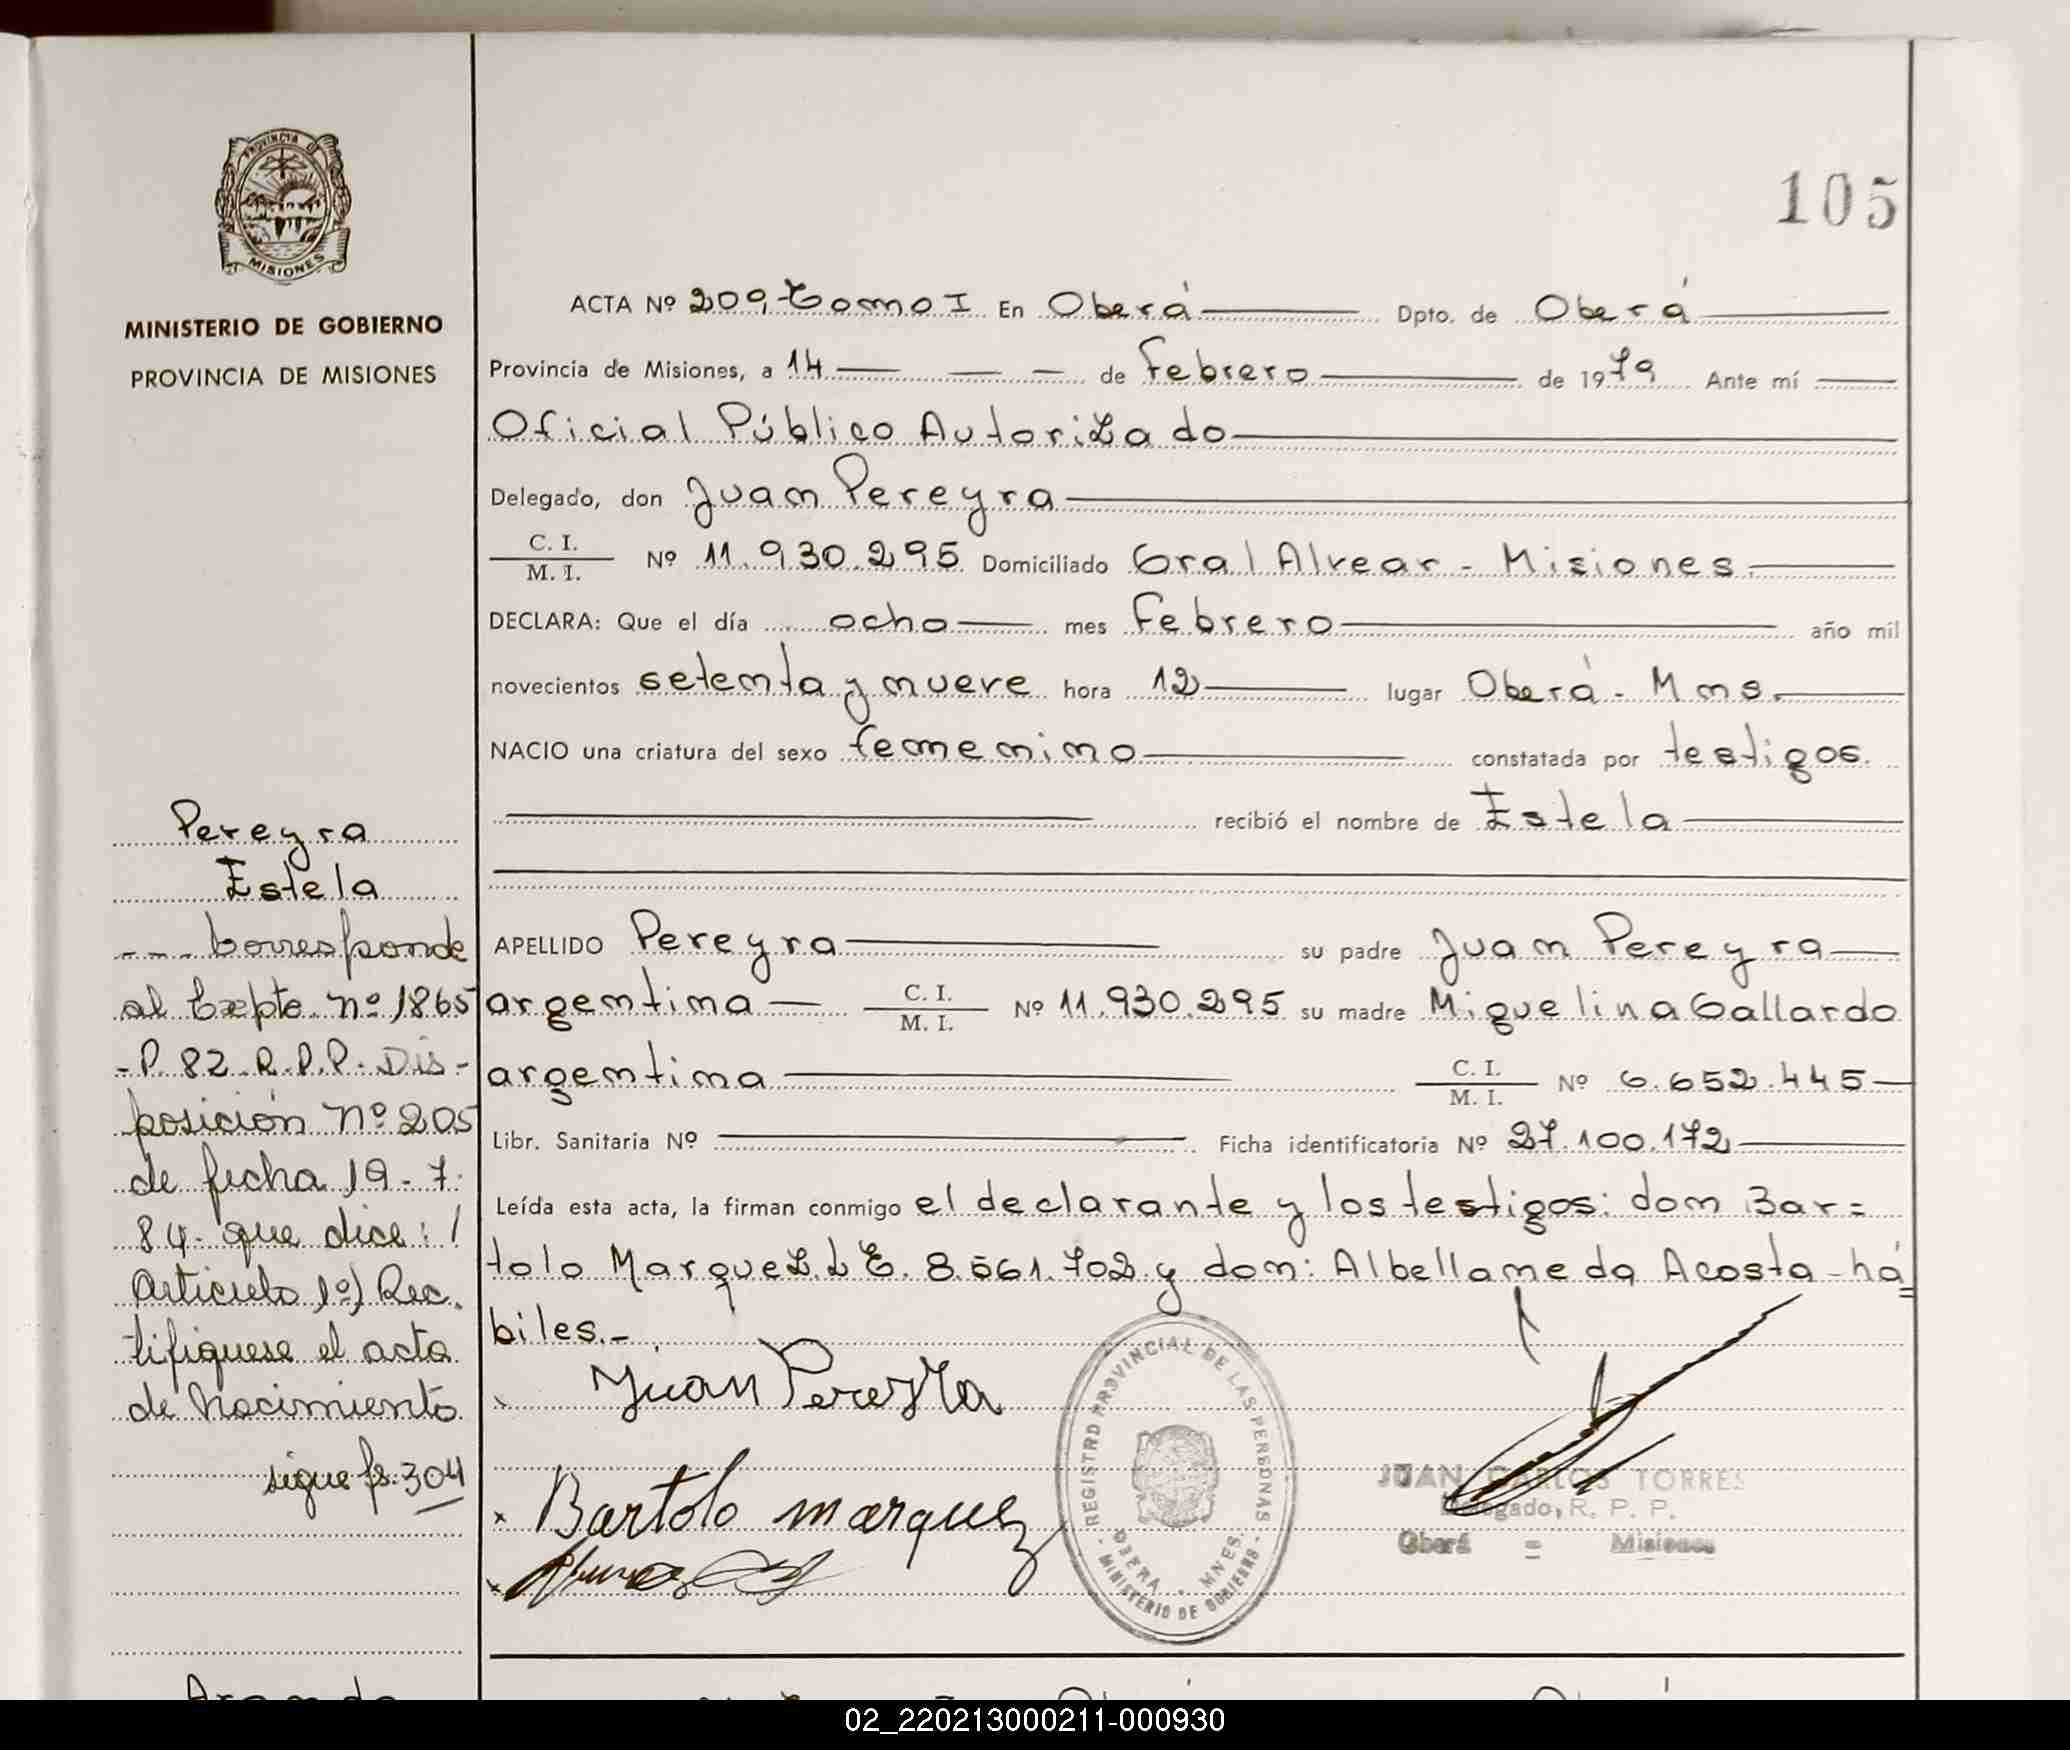 PROVINCIA D
MISIONES
MINISTERIO DE GOBIERNO
PROVINCIA DE MISIONES
105
ACTA Nº 209, Tomo I En Oberá Dpto. de Oberá
Provincia de Misiones, a 14 de Febrero de 1979 Ante mí
Oficial Público Autorizado
Delegado, don Juan Pereyra
C. I.
M. I. Nº 11.930.295 Domiciliado Gral Alvear - Misiones
DECLARA: Que el día ocho mes Febrero año mil
novecientos setenta y nueve hora 12 lugar Oberá - Mnes.
NACIO una criatura del sexo femenino constatada por testigos.
recibió el nombre de Estela
APELLIDO Pereyra su padre Juan Pereyra
argentina C. I. M. I. Nº 11.930.295 su madre Miguelina Gallardo
argentina C. I. M. I. Nº 6.652.445
Libr. Sanitaria Nº Ficha identificatoria Nº 27.100.172
Leída esta acta, la firman conmigo el declarante y los testigos: don Bar=
tolo Marquez L.E. 8.561.702 y don: Albellaneda Acosta - há
biles.-
Pereyra
Estela
--- Corresponde
al Expte. Nº 1865
- P. 82. R.P.P. Dis-
posición Nº 205
de fecha 19-7-
84. que dice: /
Articulo 1º) Rec.
tifiquese el acta
de Nacimiento
sigue fs. 304
Juan Pereyra
Bartolo marquez
REGISTRO PROVINCIAL DE LAS PERSONAS
OBERA - MNES.
MINISTERIO DE GOBIERNO
JUAN CARLOS TORRES
Delegado, R. P. P.
Oberá = Misiones
02_220213000211-000930